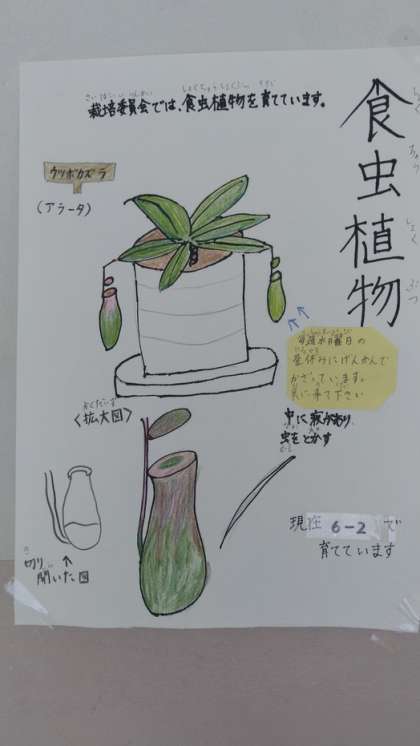 食虫植物
しょく ちゅう しょく ぶつ
栽培委員会では、食虫植物を育てています。
ウツボカズラ
(アラータ)
毎週水曜日の
昼休みにげんかんで
かざっています。
見に来て下さい
かくだいず
〈拡大図〉
中に液があり、
虫をとかす
切り
開いた図
現在6-2で
育てています